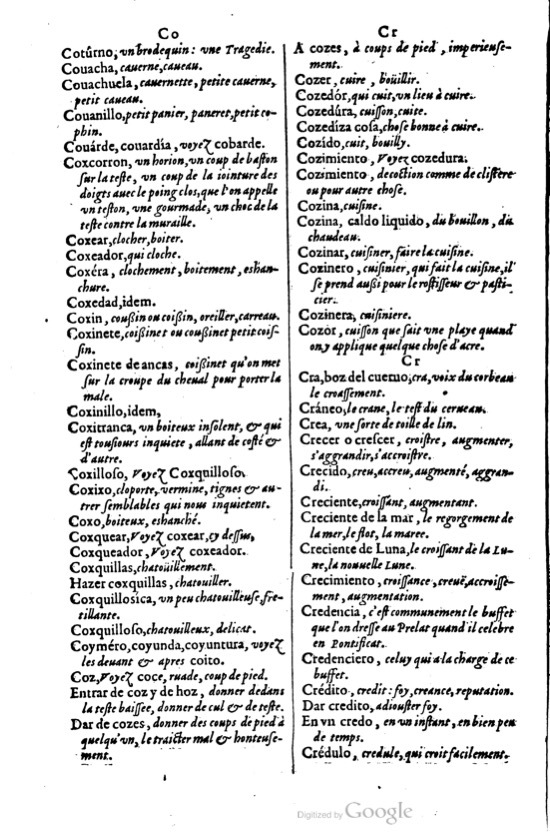 Co
Cotûrno, vn brodequin: vne Tragedie.
Couacha, cauerne, caueau.
Couachuela, cauernette, petite cauerne,
petit caueau.
Couanillo, petit panier, paneret, petit co-
phin.
Couárde, couardía, voyez cobarde.
Coxcorron, vn horion, vn coup de baston
sur la teste, vn coup de la iointure des
doigts auec le poing clos, que l'on appelle
vn teston, vne gourmade, vn choc de la
teste contre la muraille.
Coxear, clocher, boiter.
Coxeador, qui cloche.
Coxéra, clochement, boitement, eshan-
chure.
Coxedad, idem.
Coxin, coußin ou coißin, oreiller, carreau.
Coxinete, coißinet ou coußinet petit coiſ-
ſin.
Coxinete de ancas, coißinet qu'on met
sur la croupe du cheual pour porter la
male.
Coxinillo, idem,
Coxitranca, vn boiteux insolent, & qui
est tousiours inquiete, allant de costé &
d'autre.
Coxilloſo, Voyez Coxquilloſo.
Coxixo, cloporte, vermine, tignes & au-
trer semblables qui nous inquietent.
Coxo, boiteux, eshanché.
Coxquear, Voyez coxear, cy dessus,
Coxqueador, Voyez coxeador.
Coxquillas, chatoüillement.
Hazer coxquillas, chatouiller.
Coxquilloſica, vn peu chatouilleuse, fre-
tillante.
Coxquilloſo, chatouilleux, delicat.
Coyméro, coyunda, coyuntura, voyez
les deuant & apres coito.
Coz, Voyez coce, ruade, coup de pied.
Entrar de coz y de hoz, donner dedans
la teste baissee, donner de cul & de teste.
Dar de cozes, donner des coups de pied à
quelqu'vn, le traicter mal & honteuse-
ment.
Cr
A cozes, à coups de pied, imperieuse-
ment.
Cozer, cuire, boüillir.
Cozedór, qui cuit, vn lieu à cuire.
Cozedûra, cuisson, cuite.
Cozediza coſa, chose bonne à cuire.
Cozído, cuit, bouilly.
Cozimiento, Voyez cozedura.
Cozimiento, decoction comme de clistere
ou pour autre chose.
Cozina, cuisine.
Cozina, caldo liquido, du bouillon, du
chaudeau.
Cozinar, cuisiner, faire la cuisine.
Cozinero, cuisinier, qui fait la cuisine, il
se prend außi pour le rostisseur & pasti-
cier.
Cozinera, cuisiniere.
Cozór, cuisson que fait vne playe quand
on y applique quelque chose d'acre.
Cr
Cra, boz del cueruo, cra, voix du corbeau
le croassement.
Cráneo, le crane, le test du cerueau.
Crea, vne sorte de toille de lin.
Crecer o creſcer, croistre, augmenter,
s'aggrandir, s'accroistre.
Crecido, creu, accreu, augmenté, aggran-
di.
Creciente, croissant, augmentant.
Creciente de la mar, le regorgement de
la mer, le flot, la maree.
Creciente de Luna, le croissant de la Lu-
ne, la nouuelle Lune.
Crecimiento, croissance, creuë, accroisse-
ment, augmentation.
Credencia, c'est communement le buffet
que l'on dresse au Prelat quand il celebre
en Pontificat.
Credenciero, celuy qui a la charge de ce
buffet.
Crédito, credit: foy, creance, reputation.
Dar credito, adiouster foy.
En vn credo, en vn instant, en bien peu
de temps.
Crédulo, credule, qui croit facilement.
Digitized by Google